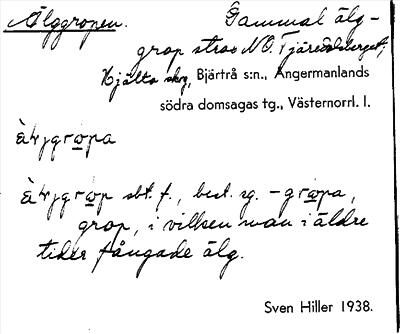 Älggropen. Gammal älg-
grop strax NO. Tjäredalsberget,
Hjälta skog, Bjärtrå s:n., Ångermanlands
södra domsagas tg., Västernorrl. l.
gropa
sbt. f., best. sg. -gropa,
grop, i vilken man i äldre
tider fångade älg.
Sven Hiller 1938.